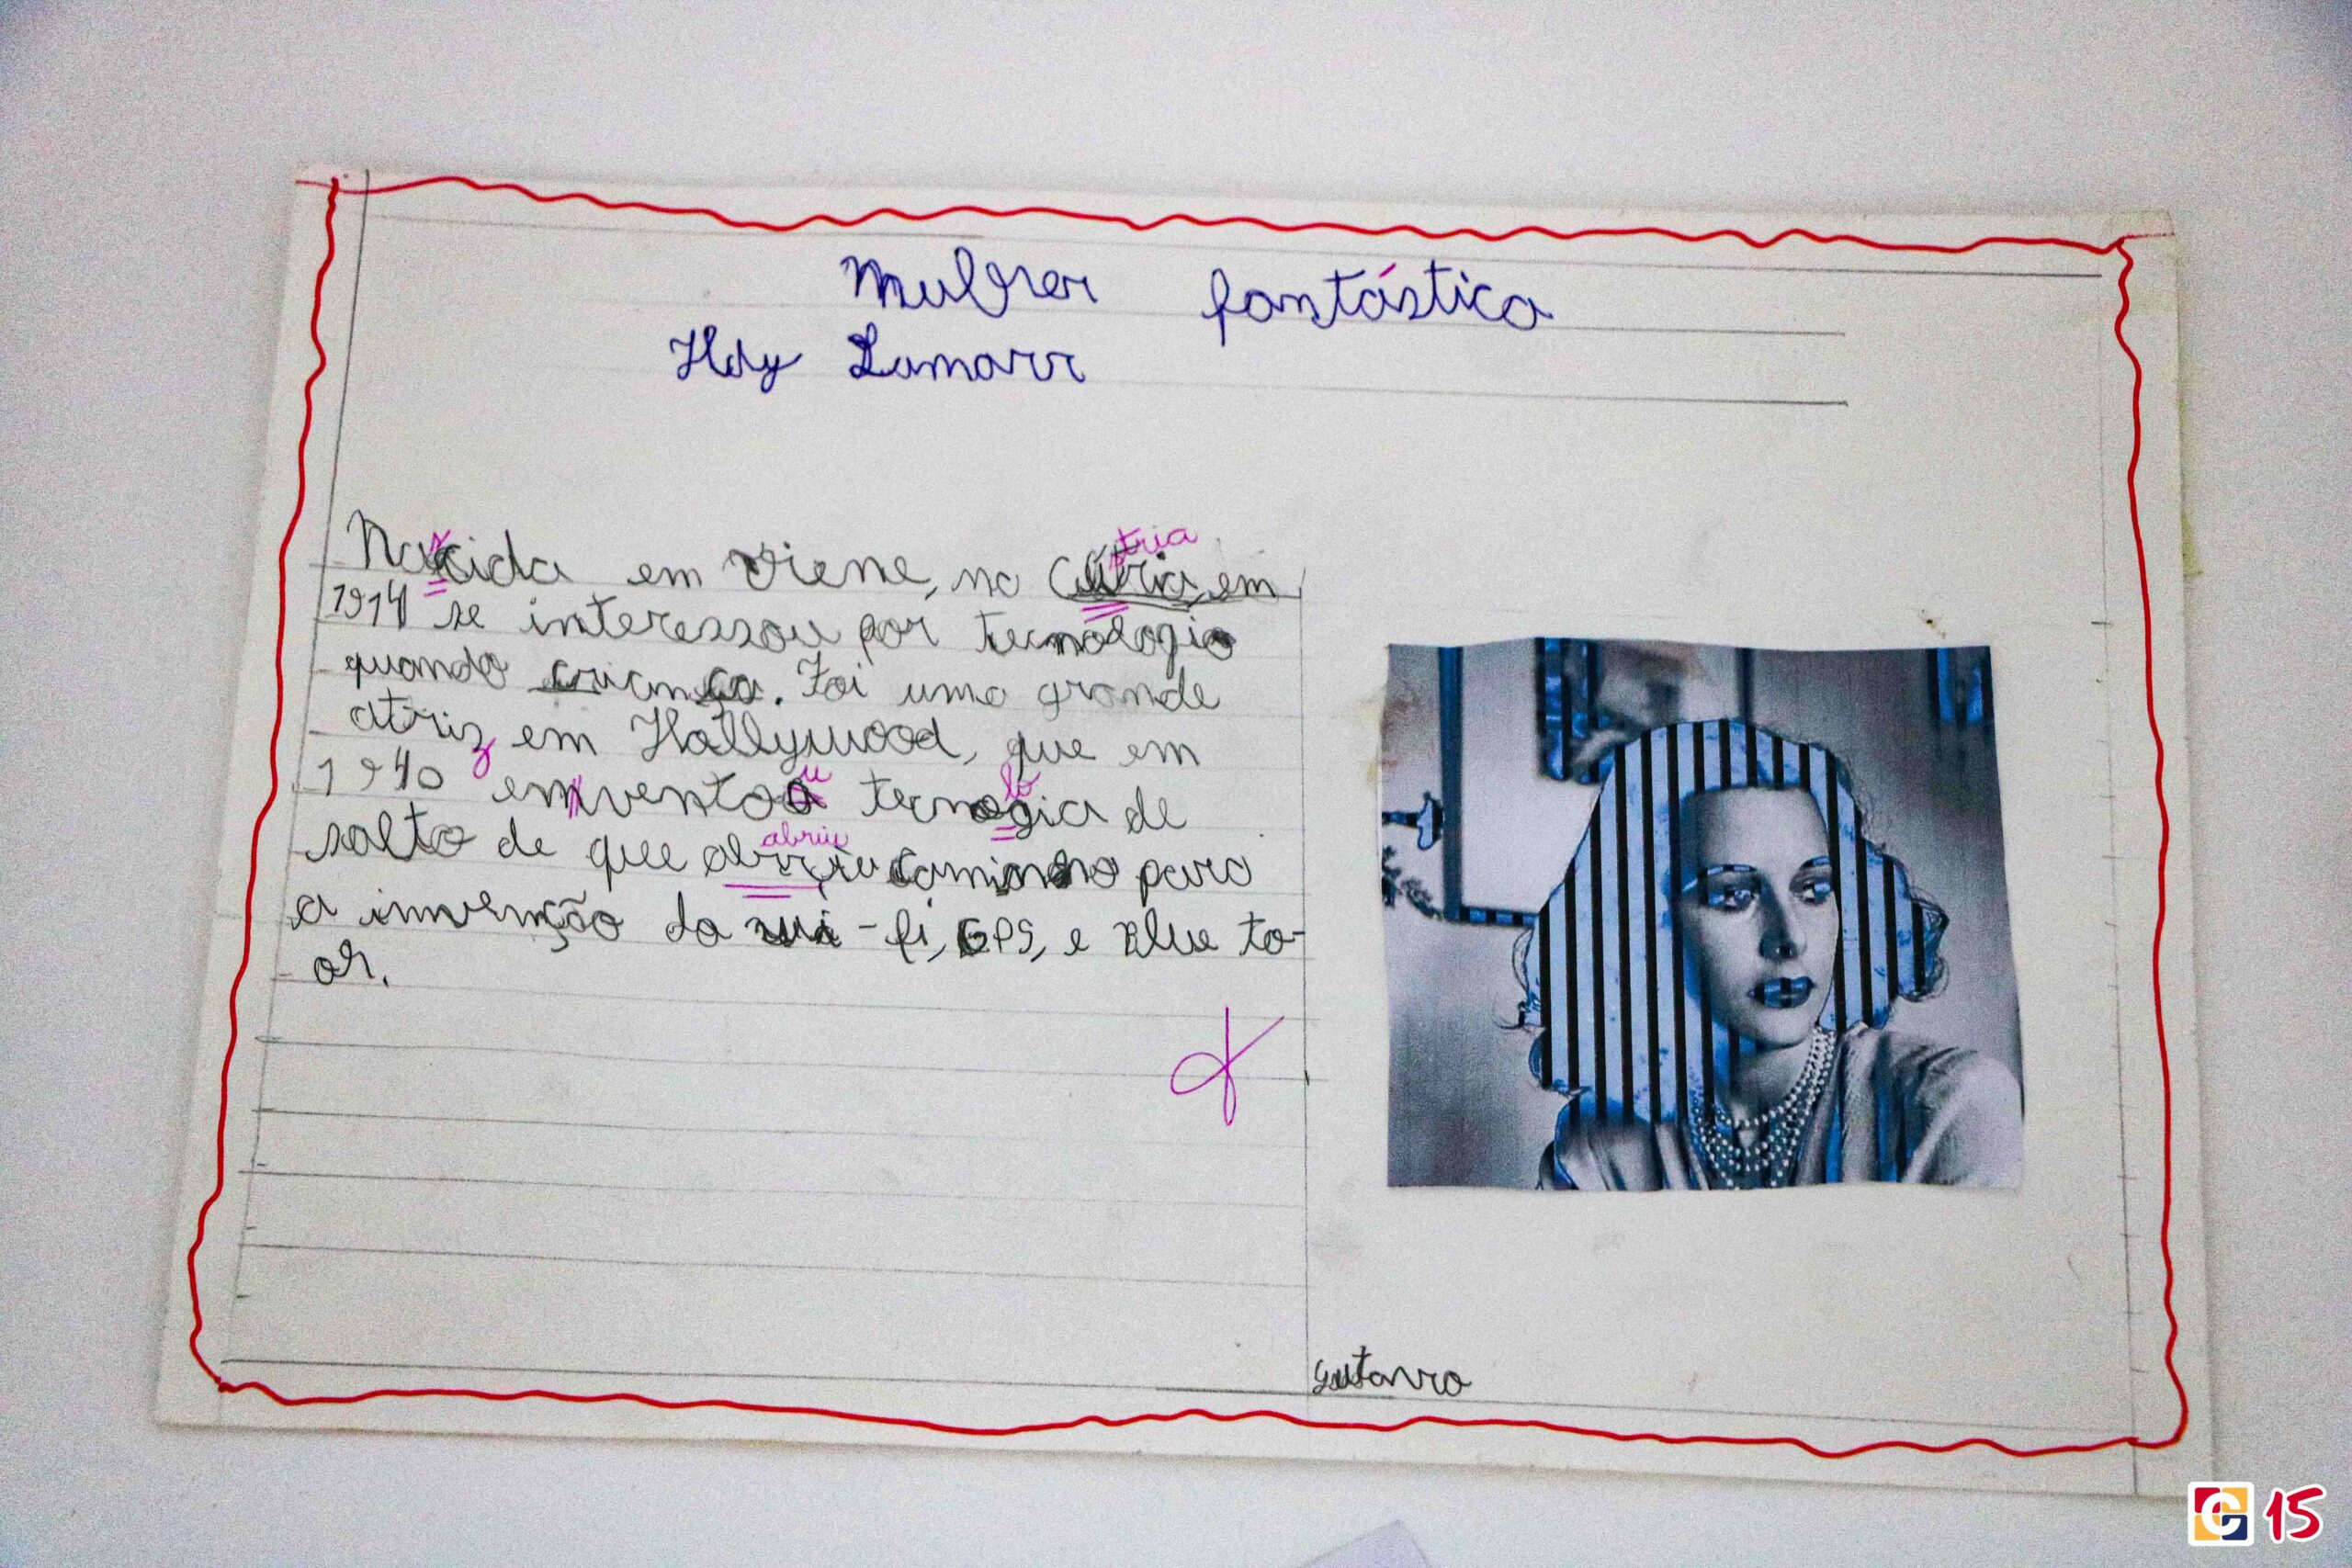 Mulher fantástica
Hdy Lamarr
tria
Nascida em Viene, na em
1914 se interessou por tecnologia
quando criança. Foi uma grande
atriz em Hollywood, que em
u lo
1940 emventoo tecnogia de
abriu
salto de que abrriu caminho para
a invenção do wi-fi, GPS, e Blue to-
oh.
Gustavo
15